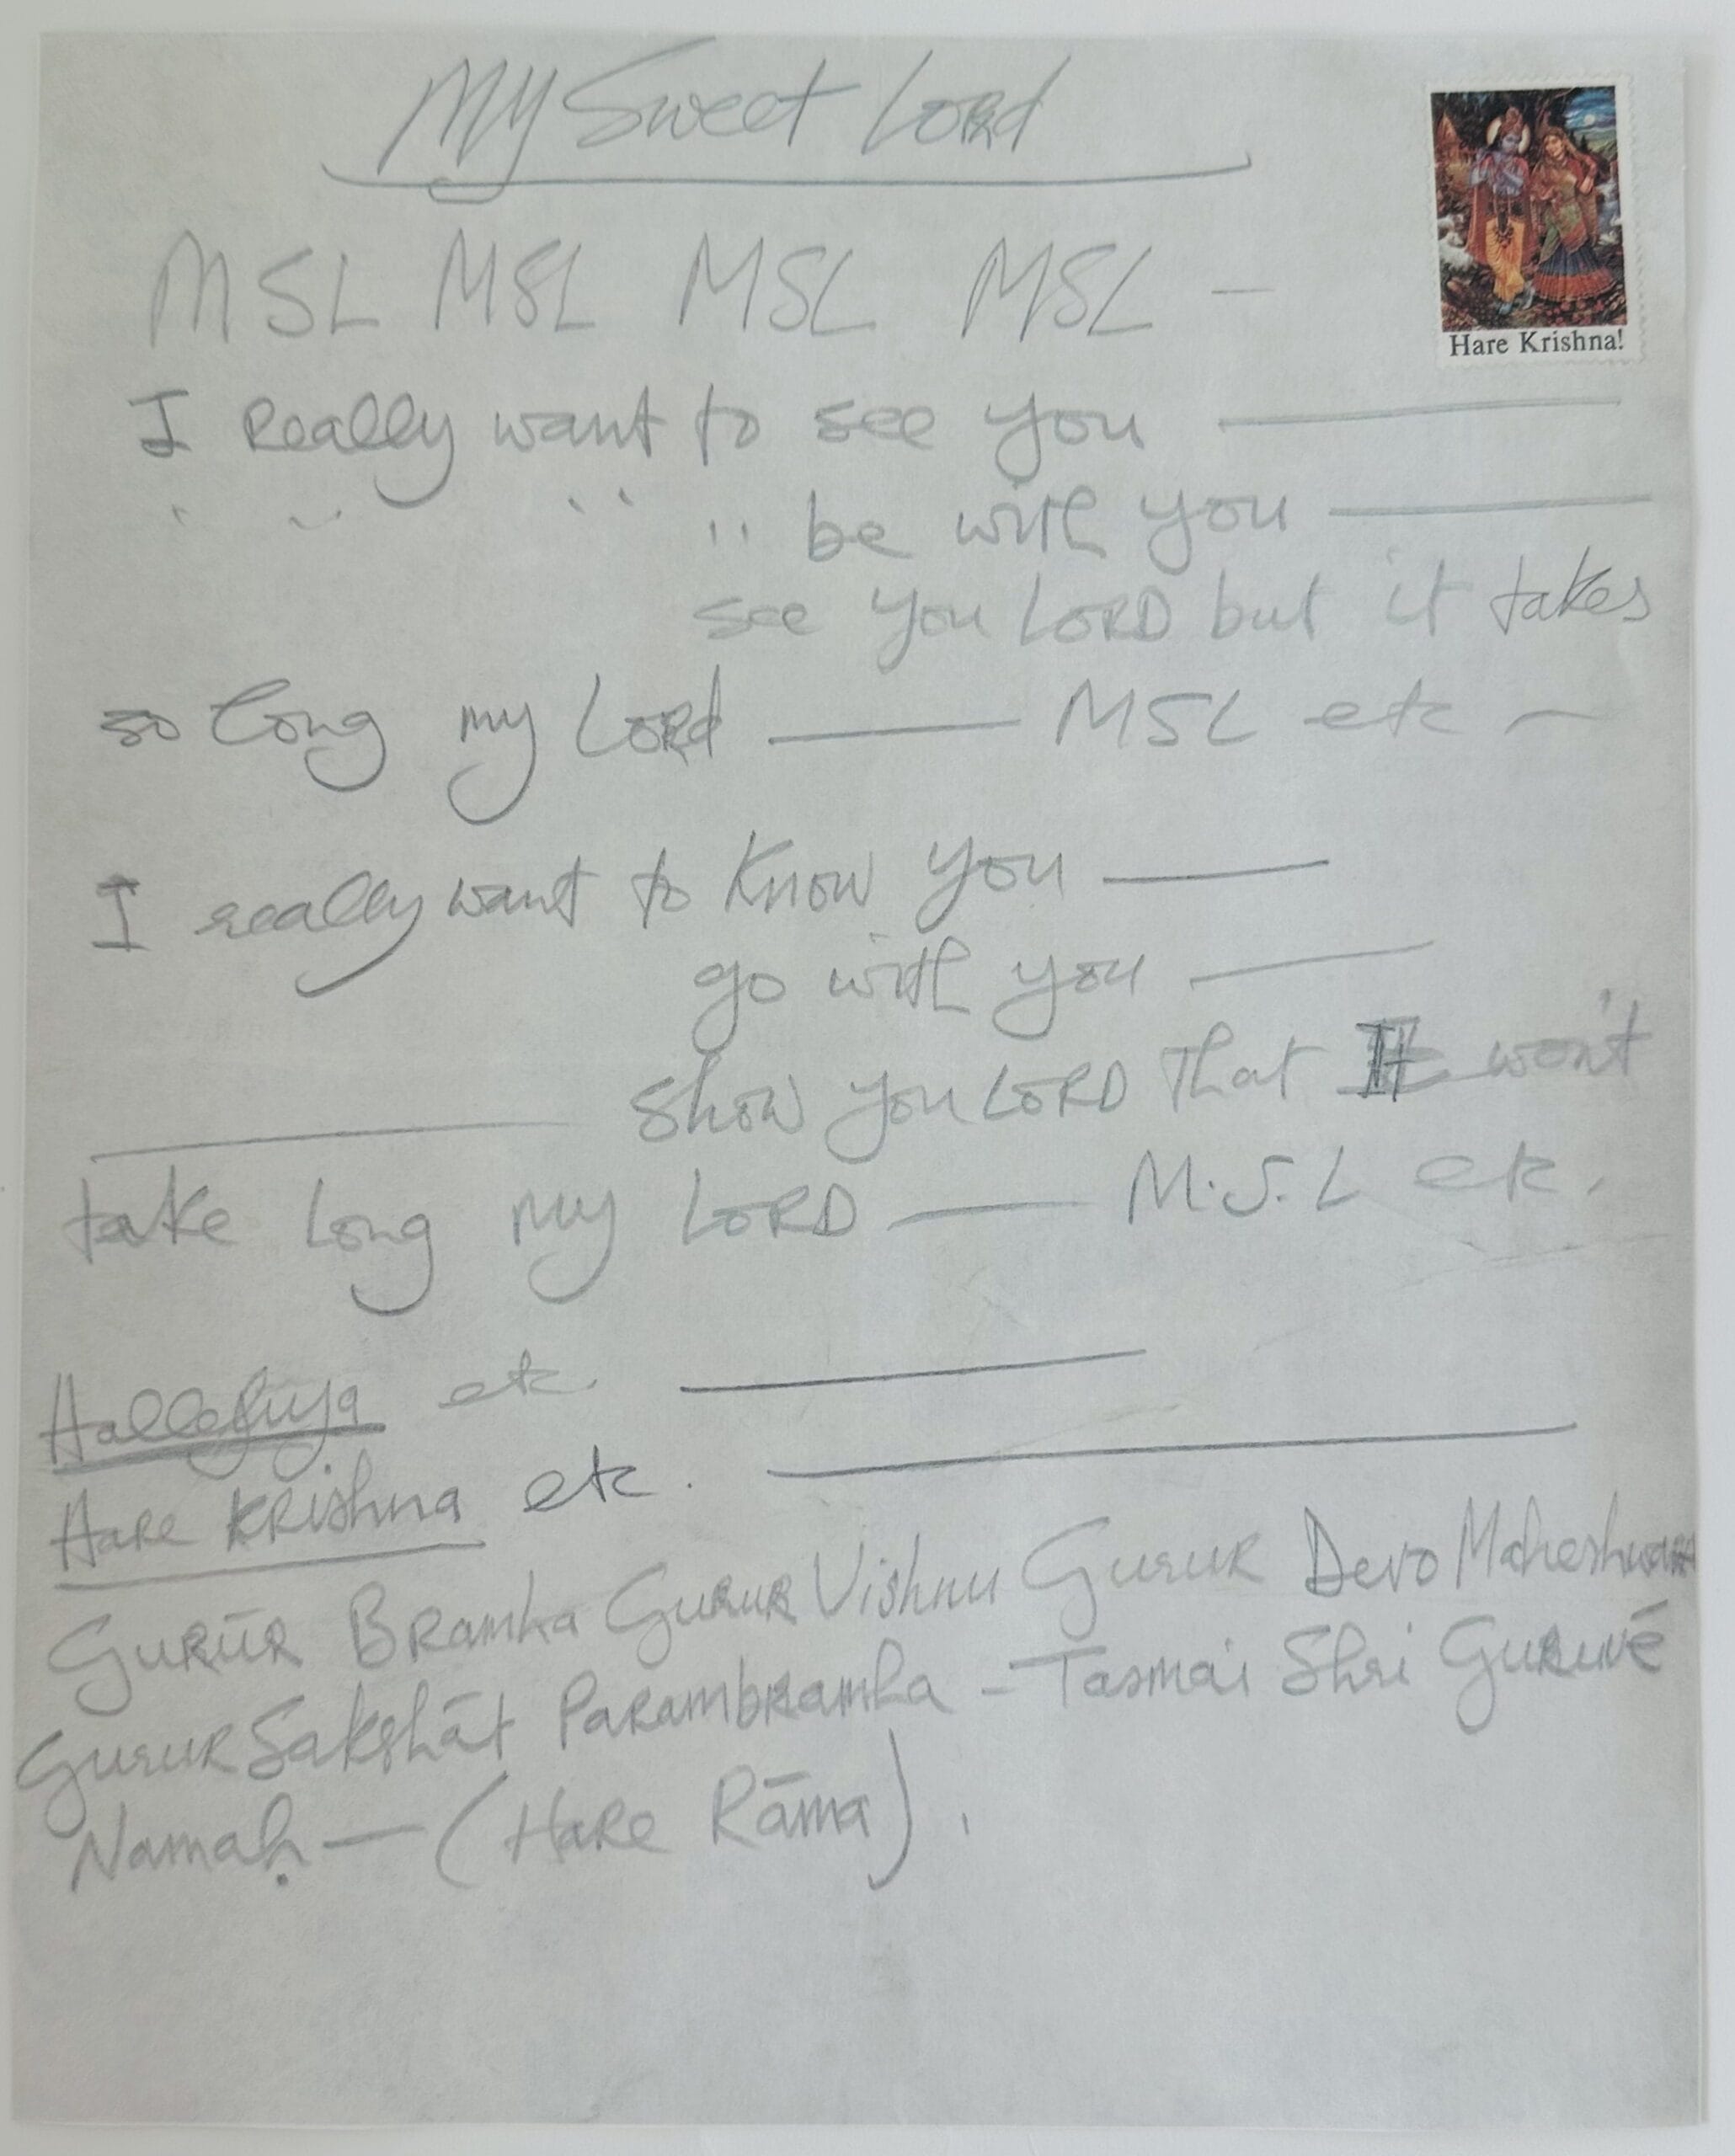 My Sweet Lord
MSL MSL MSL MSL —
Hare Krishna!
I Really want to see you ———
" " " " be with you ———
see you LORD but it takes
so long my Lord ——— MSL etc —
I really want to know you ———
go with you ———
——— show you LORD that It won't
take long my LORD ——— M.S.L etc.
Hallelujya etc. ———
Hare Krishna etc. ———
Gurūr Bramha Gurur Vishnu Gurur Devo Maheshwara
Gurur Sakshāt Parambramha – Tasmai Shri Guruvē
Namaḥ — (Hare Rāma).